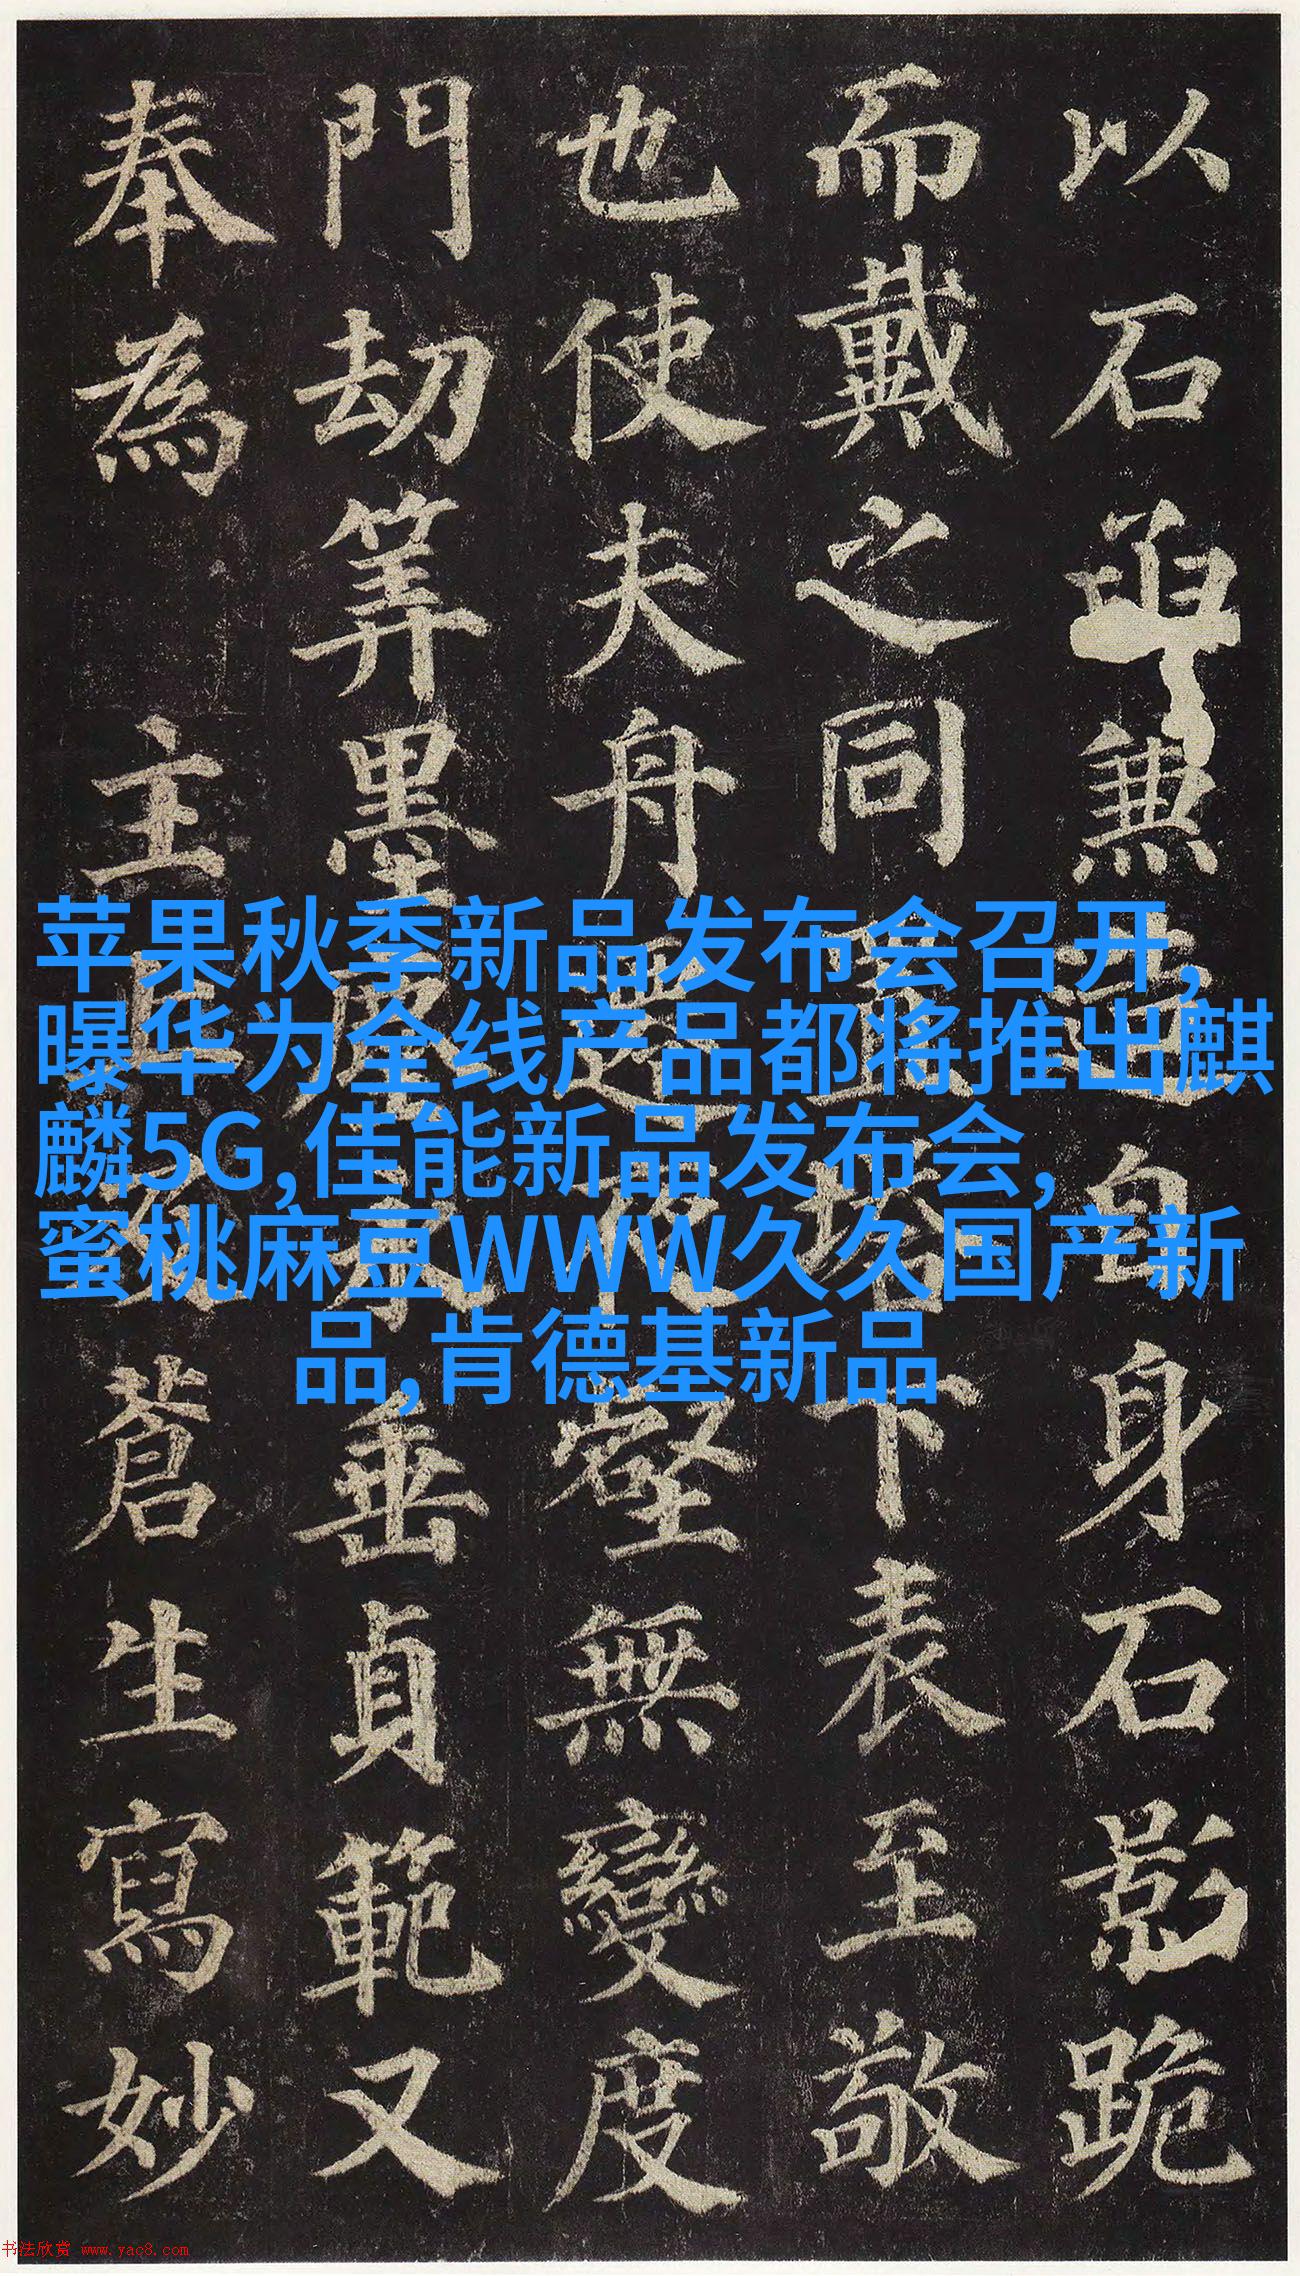 以石兼造自身石影跪
而戴之同置塔下表至敬
也使夫舟遷夜壑無變度
門劫筭墨塵永垂貞範又
奉為主上及蒼生寫妙
苹果秋季新品发布会召开,
曝华为全线产品都将推出麒
麟5G,佳能新品发布会,
蜜桃麻豆WWW久久国产新
品,肯德基新品
书法欣赏 www.yac8.com